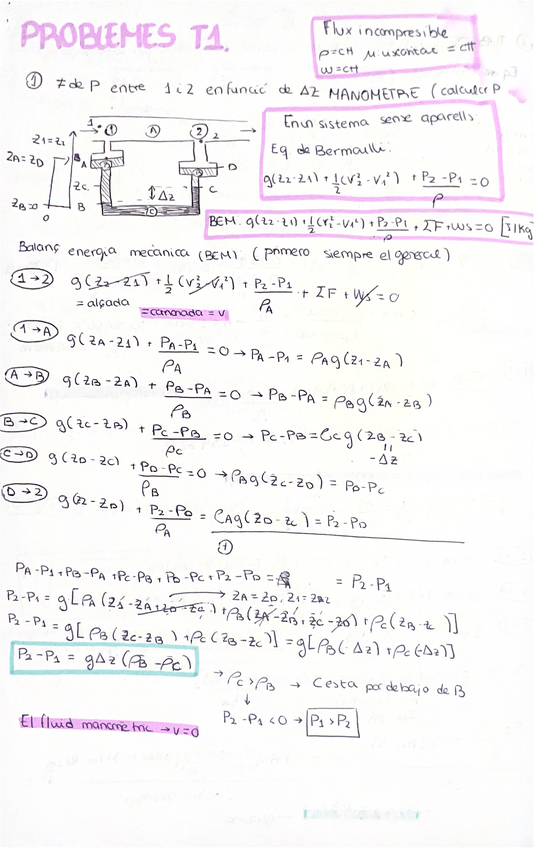 PROBLEMES T1.
Flux incompresible
ρ=ctt μ viscositat = ctt
w=ctt
① ≠ de P entre 1 i 2 en funció de ΔZ MANOMETRE (calcular P
Z1=Z2
ZA=ZD
ZC
ZB=0
0
1
① Ⓐ ② 2
A
B
D
C
ΔZ
En un sistema sense aparells:
Eq. de Bernoulli:
g(Z2-Z1) + 1/2 (V2² - V1²) + (P2-P1)/ρ = 0
BEM: g(Z2-Z1) + 1/2 (V2²-V1²) + (P2-P1)/ρ + ΣF + Ws = 0 [J/kg]
Balanç energia mecànica (BEM) (primero siempre el general)
1→2 g(Z2-Z1) + 1/2 (V2²-V1²) + (P2-P1)/ρA + ΣF + Ws = 0
= alçada
= canonada = v
1→A g(ZA-Z1) + (PA-P1)/ρA = 0 → PA-P1 = ρAg(Z1-ZA)
A→B g(ZB-ZA) + (PB-PA)/ρB = 0 → PB-PA = ρBg(ZA-ZB)
B→C g(ZC-ZB) + (PC-PB)/ρC = 0 → PC-PB = ρCg(ZB-ZC)
-ΔZ
C→D g(ZD-ZC) + (PD-PC)/ρB = 0 → ρBg(ZC-ZD) = PD-PC
D→2 g(Z2-ZD) + (P2-PD)/ρA = ρAg(ZD-Z2) = P2-PD
PA-P1+PB-PA+PC-PB+PD-PC+P2-PD = = P2-P1
→ ZA=ZD, Z1=Z2
P2-P1 = g[ρA(Z1-ZA+ZD-Z2) + ρB(ZA-ZB+ZC-ZD) + ρC(ZB-ZC)]
P2-P1 = g[ρB(ZC-ZB) + ρC(ZB-ZC)] = g[ρB(ΔZ) + ρC(-ΔZ)]
P2-P1 = gΔZ(ρB-ρC)
→ ρC>ρB → C está por debajo de B
↓
P2-P1<0 → P1>P2
El fluid manomètric → v=0